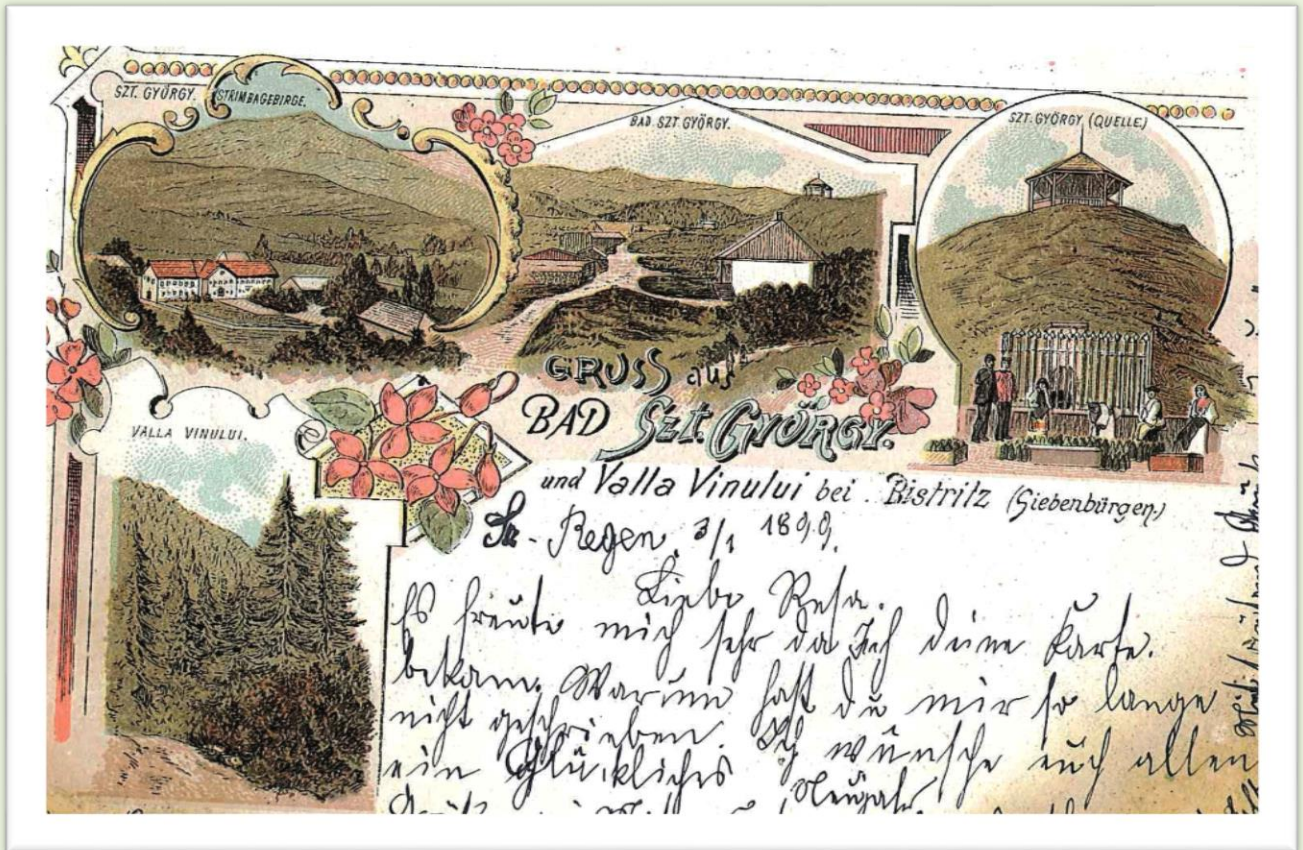 SZT. GYÖRGY. STRIMBAGEBIRGE.
BAD. SZT. GYÖRGY.
SZT. GYÖRGY (QUELLE)
VALLA VINULUI.
GRUSS aus
BAD SZT. GYÖRGY.
und Valla Vinului bei Bistritz (Siebenbürgen)
Regen, 3/1 1899.
Liebe Resa.
Es freute mich sehr da Ich deine Karte.
bekam. Warum hast du mir so lange
nicht geschrieben. Ich wünsche euch allen
ein Glückliches Neujahr